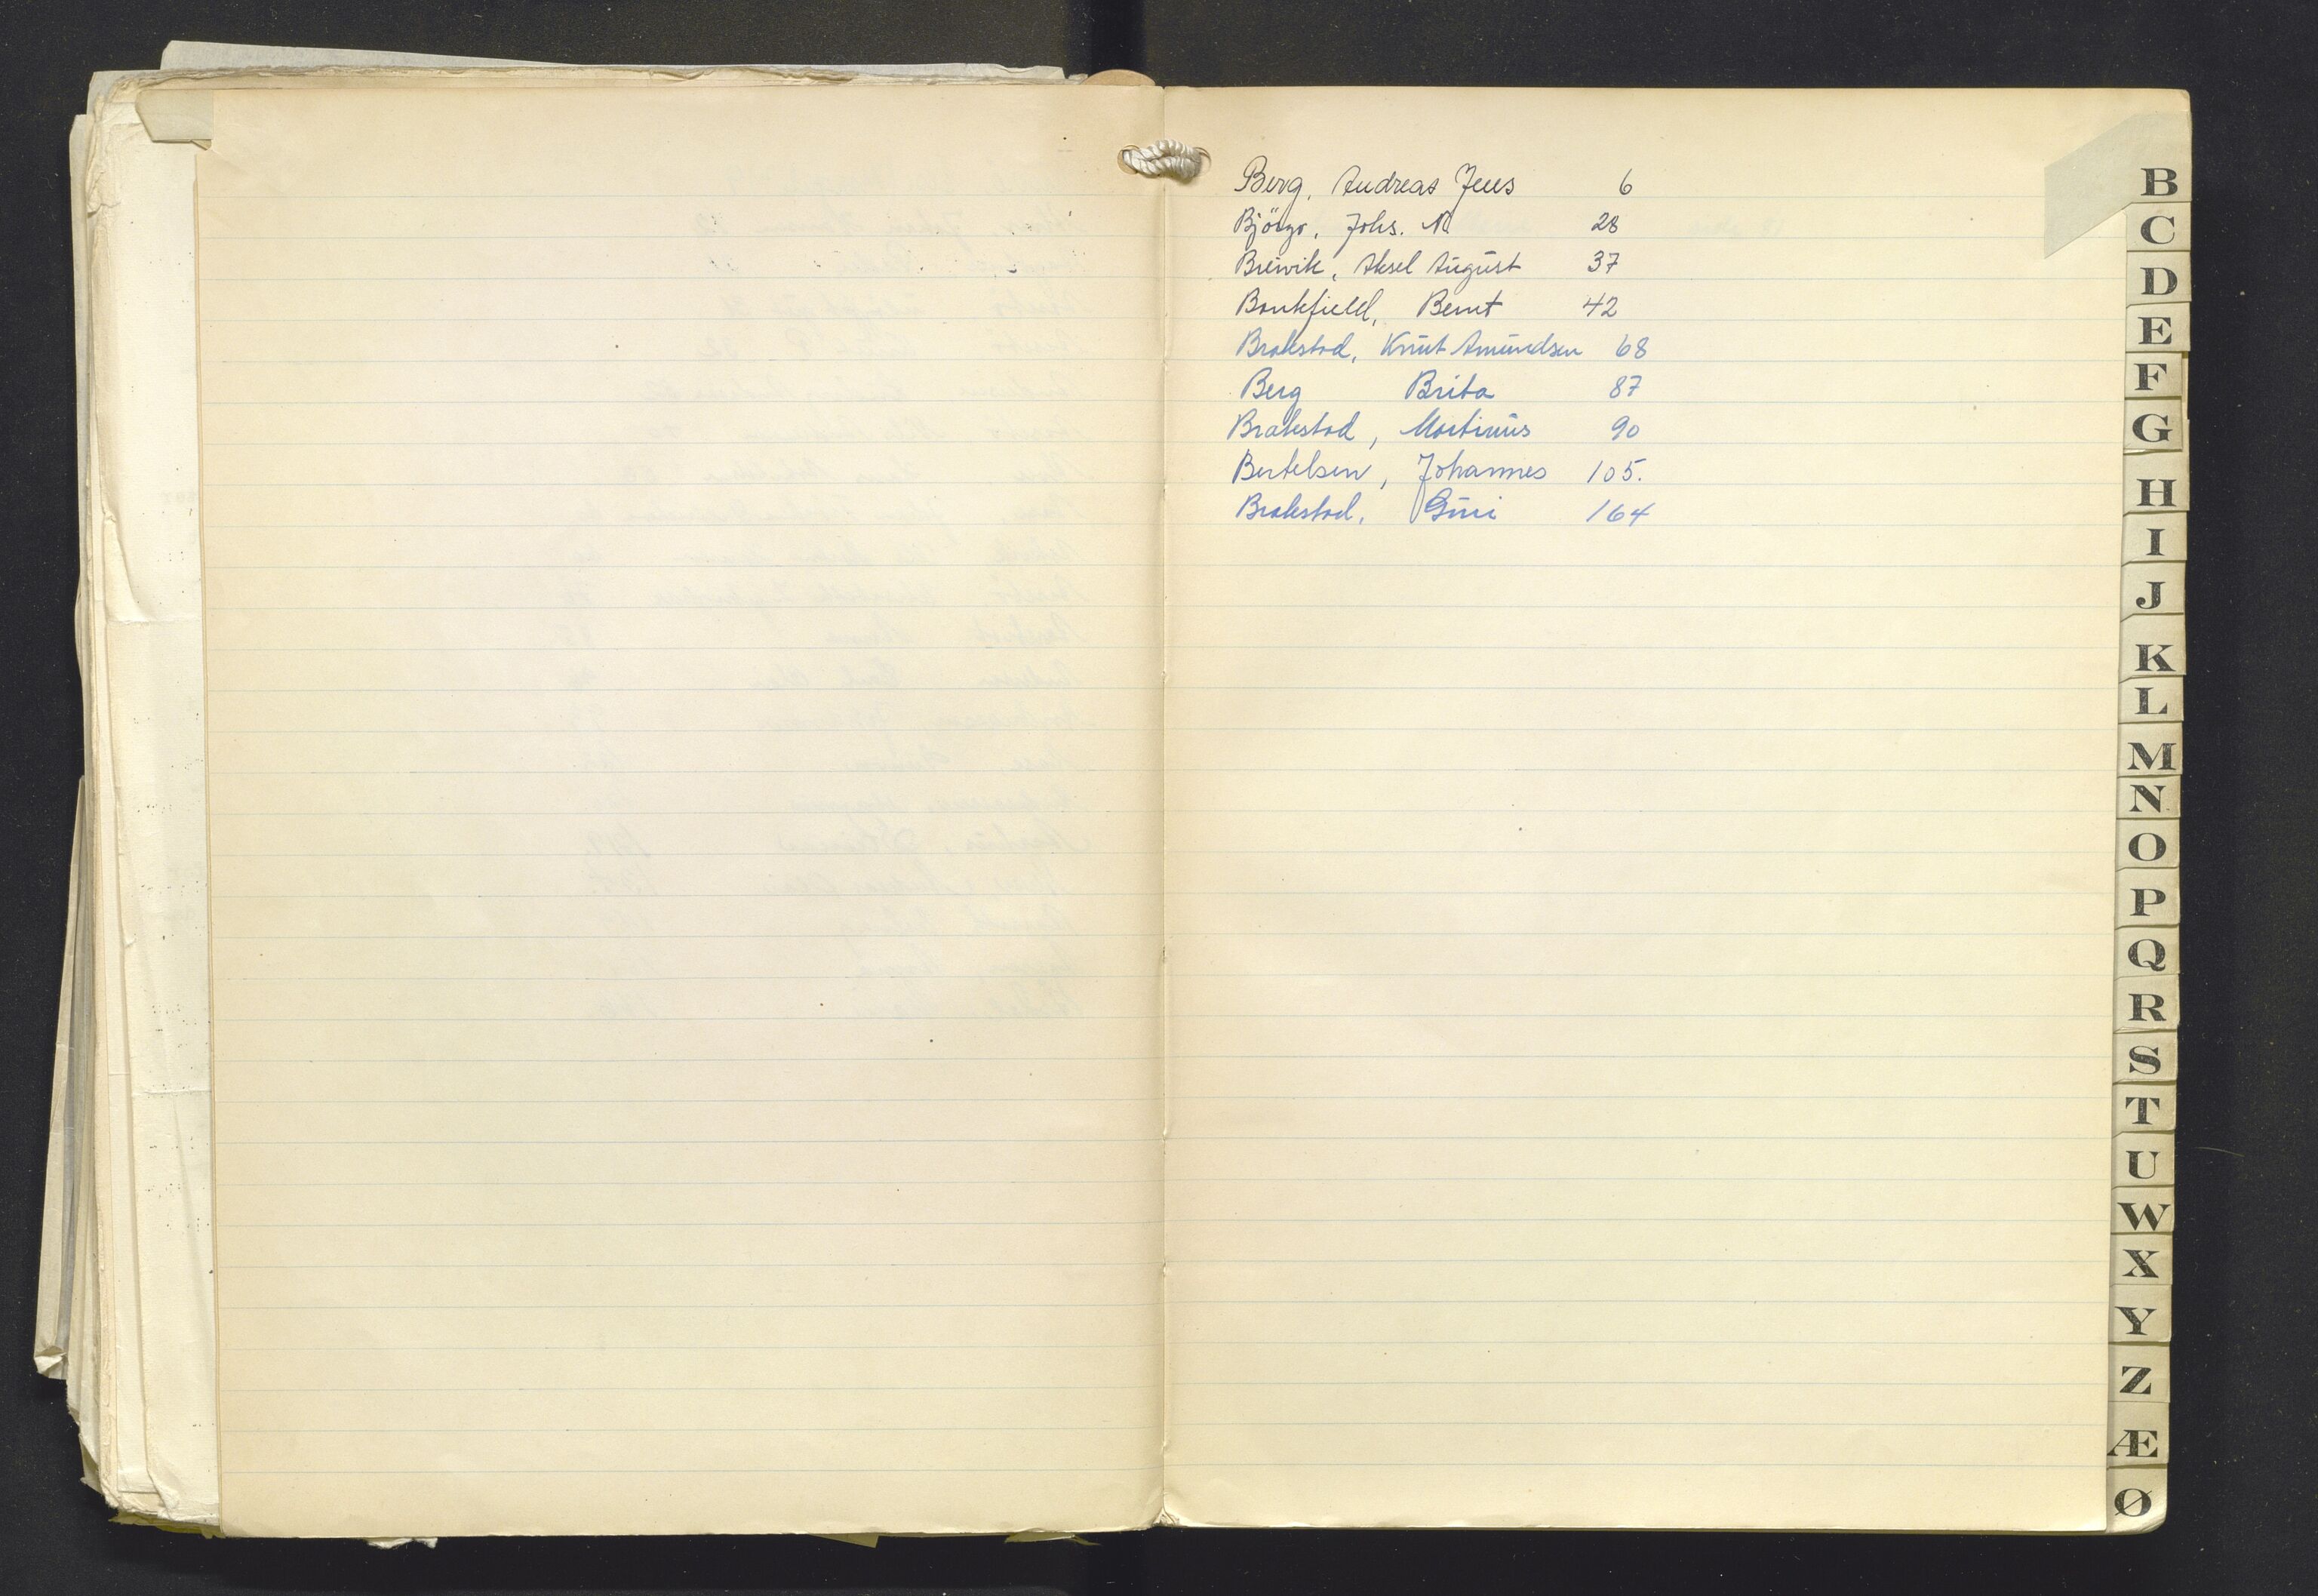 Berg, Andreas Jens 6
Björgo, Johs. N. 28
Breivik, Aksel August 37
Bankfield, Bernt 42
Brakstad, Knut Amundsen 68
Berg Brita 87
Brakstad, Martinus 90
Bertelsen, Johannes 105.
Brakstad, Guri 164
B
C
D
E
F
G
H
I
J
K
L
M
N
O
P
Q
R
S
T
U
W
X
Y
Z
Æ
Ø